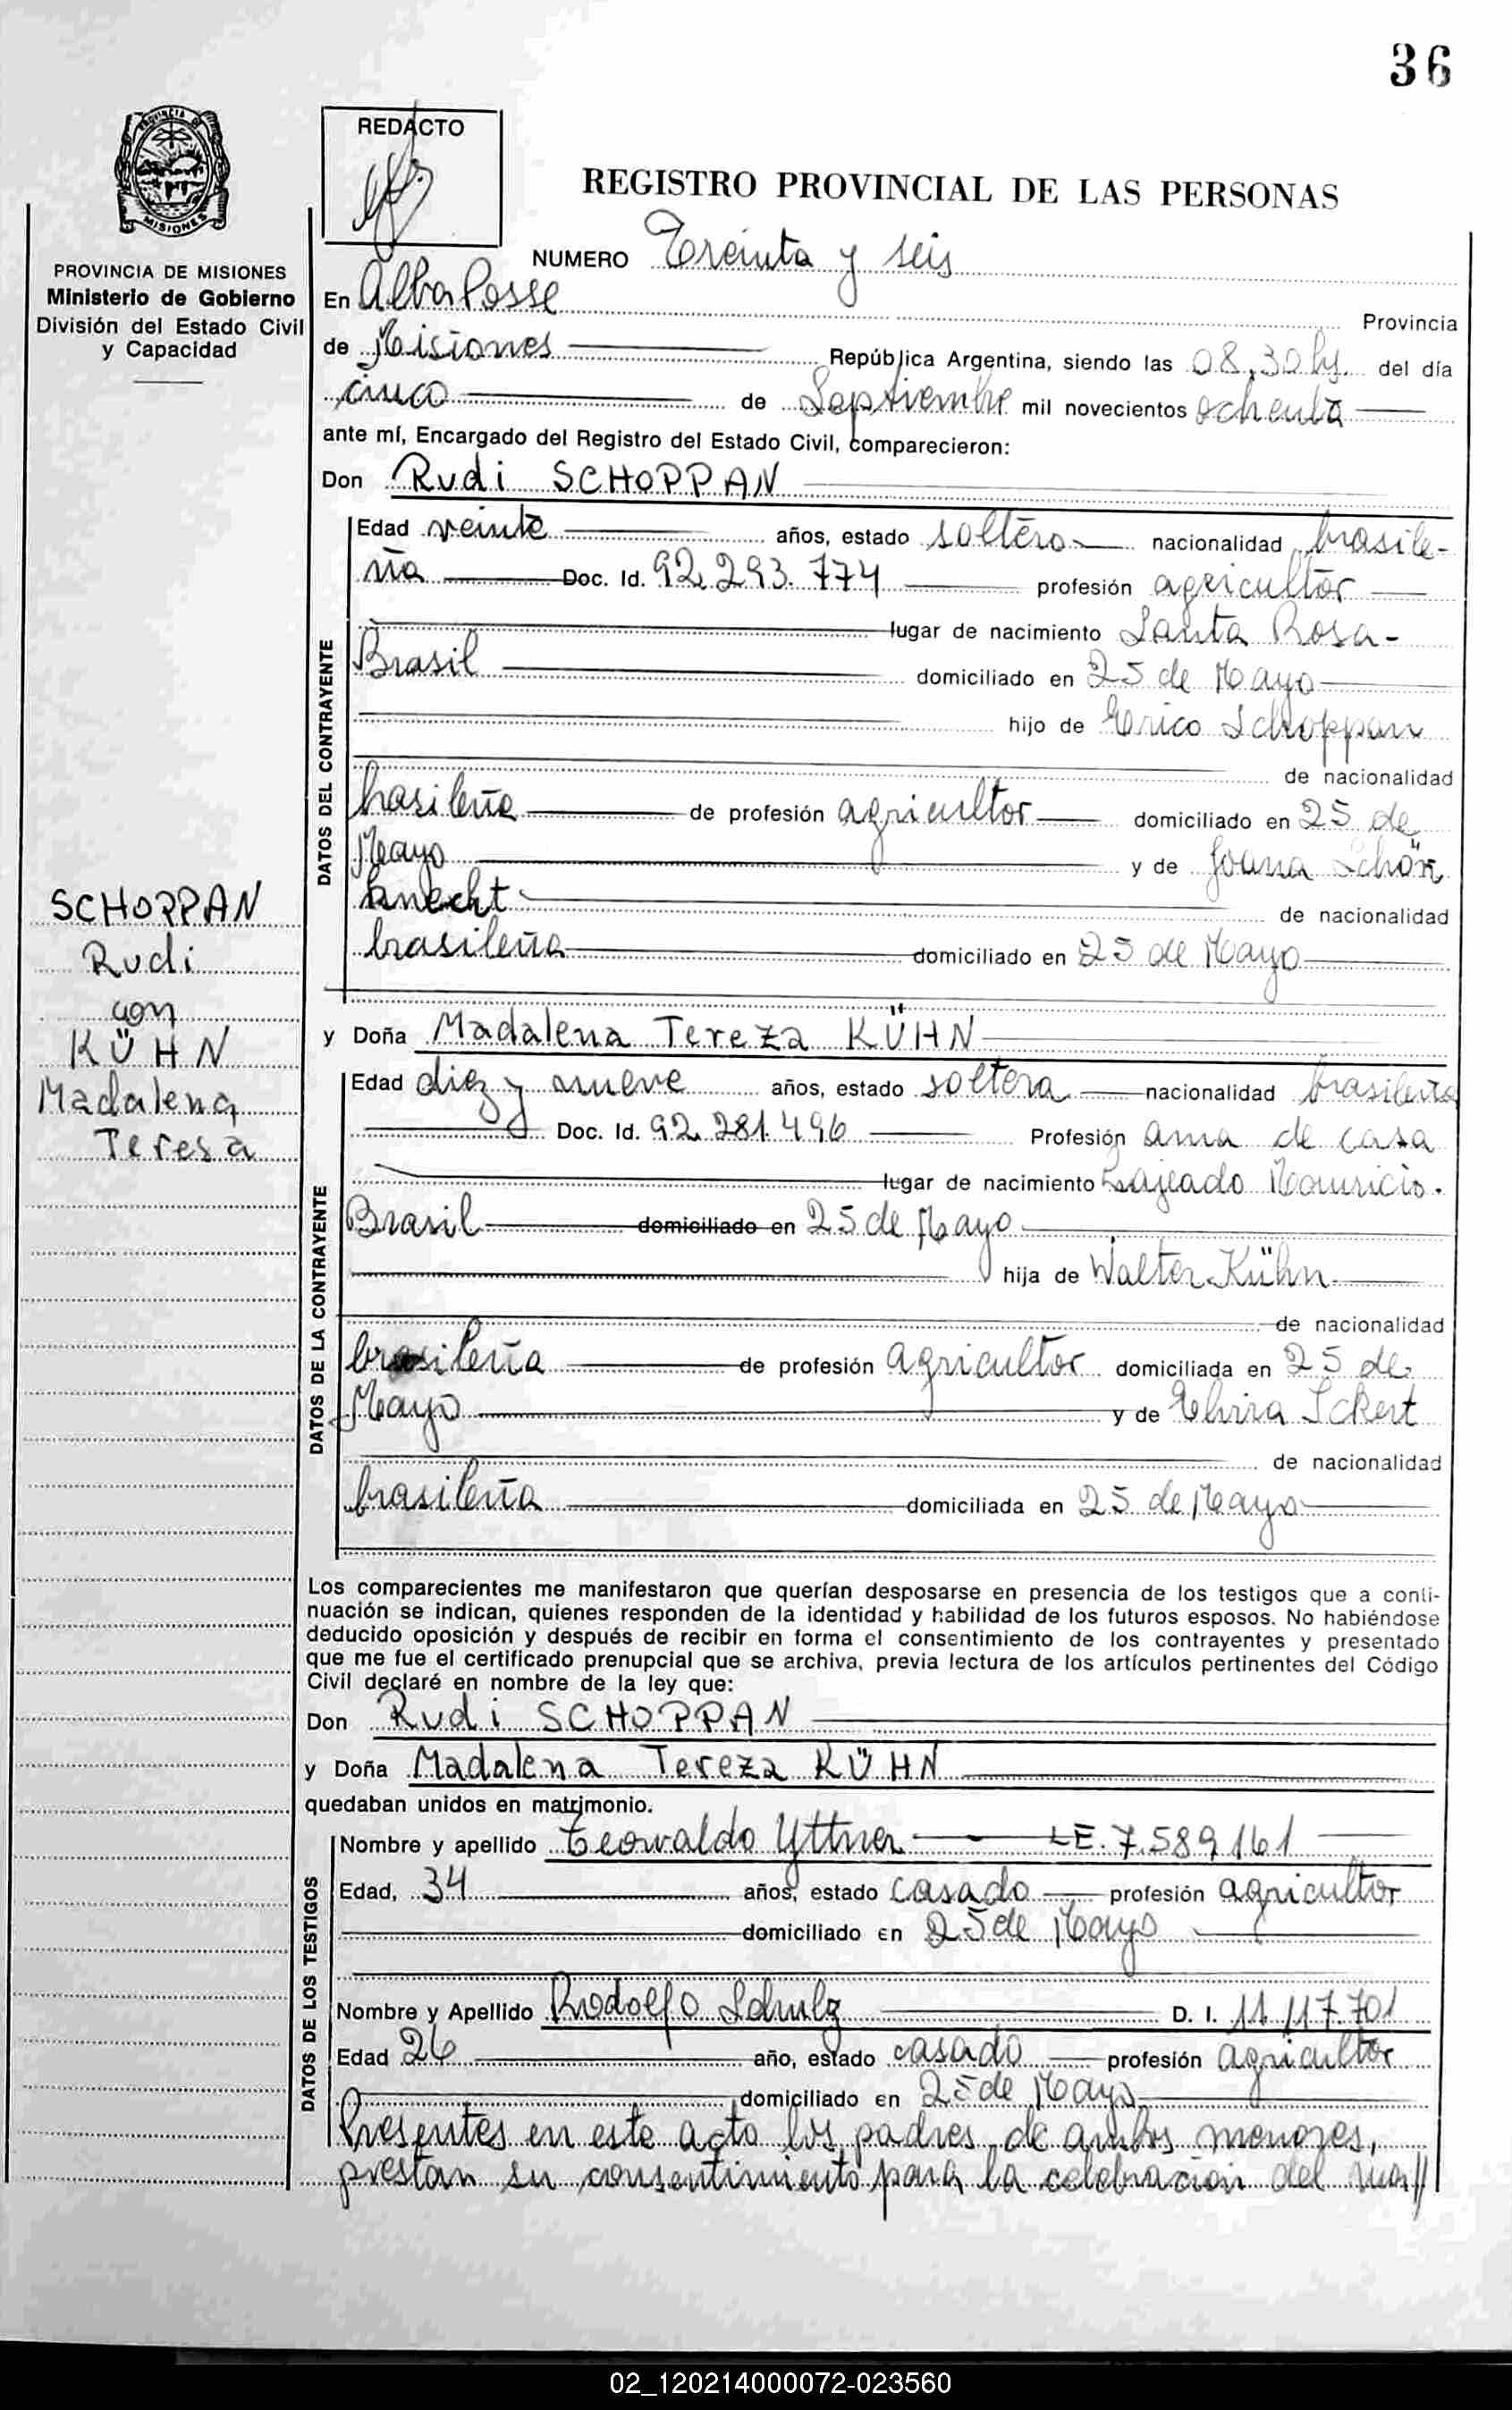 36
PROVINCIA DE MISIONES
Ministerio de Gobierno
División del Estado Civil
y Capacidad
REDACTO
REGISTRO PROVINCIAL DE LAS PERSONAS
NUMERO Treinta y seis
En Alba Posse Provincia
de Misiones República Argentina, siendo las 08,30 hs. del día
cinco de Septiembre mil novecientos ochenta
ante mí, Encargado del Registro del Estado Civil, comparecieron:
Don Rudi SCHOPPAN
DATOS DEL CONTRAYENTE
Edad veinte años, estado soltero nacionalidad brasile-
ña Doc. Id. 92.293.774 profesión agricultor
lugar de nacimiento Santa Rosa-
Brasil domiciliado en 25 de Mayo
hijo de Erico Schoppan
de nacionalidad
brasileña de profesión agricultor domiciliado en 25 de
Mayo y de Joana Schön
knecht de nacionalidad
brasileña domiciliado en 25 de Mayo
SCHOPPAN
Rudi
con
KÜHN
Madalena
Teresa
y Doña Madalena Tereza KÜHN
DATOS DE LA CONTRAYENTE
Edad diez y nueve años, estado soltera nacionalidad brasileña
Doc. Id. 92.281.496 Profesión ama de casa
lugar de nacimiento Lajeado Mauricio.
Brasil domiciliado en 25 de Mayo
hija de Walter Kühn
de nacionalidad
brasileña de profesión agricultor domiciliada en 25 de
Mayo y de Elvira Ickert
de nacionalidad
brasileña domiciliada en 25 de Mayo
Los comparecientes me manifestaron que querían desposarse en presencia de los testigos que a conti-
nuación se indican, quienes responden de la identidad y habilidad de los futuros esposos. No habiéndose
deducido oposición y después de recibir en forma el consentimiento de los contrayentes y presentado
que me fue el certificado prenupcial que se archiva, previa lectura de los artículos pertinentes del Código
Civil declaré en nombre de la ley que:
Don Rudi SCHOPPAN
y Doña Madalena Tereza KÜHN
quedaban unidos en matrimonio.
DATOS DE LOS TESTIGOS
Nombre y apellido Teowaldo Yttner LE. 7.589161
Edad, 34 años, estado casado profesión agricultor
domiciliado en 25 de Mayo
Nombre y Apellido Rodolfo Schulz D. I. 11.117.701
Edad 26 año, estado casado profesión agricultor
domiciliado en 25 de Mayo
Presentes en este acto los padres de ambos menores,
prestan su consentimiento para la celebración del ma//
02_120214000072-023560